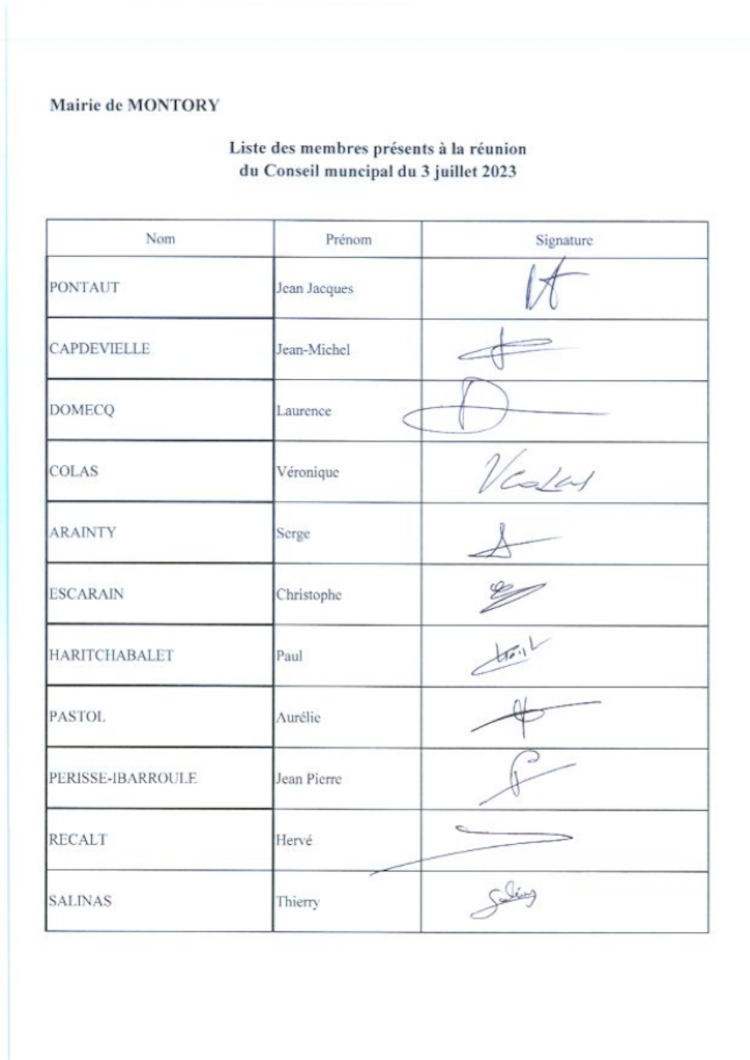 Mairie de MONTORY
Liste des membres présents à la réunion
du Conseil muncipal du 3 juillet 2023
Nom Prénom Signature
PONTAUT Jean Jacques
CAPDEVIELLE Jean-Michel
DOMECQ Laurence
COLAS Véronique VColas
ARAINTY Serge
ESCARAIN Christophe
HARITCHABALET Paul
PASTOL Aurélie
PERISSE-IBARROULE Jean Pierre
RECALT Hervé
SALINAS Thierry